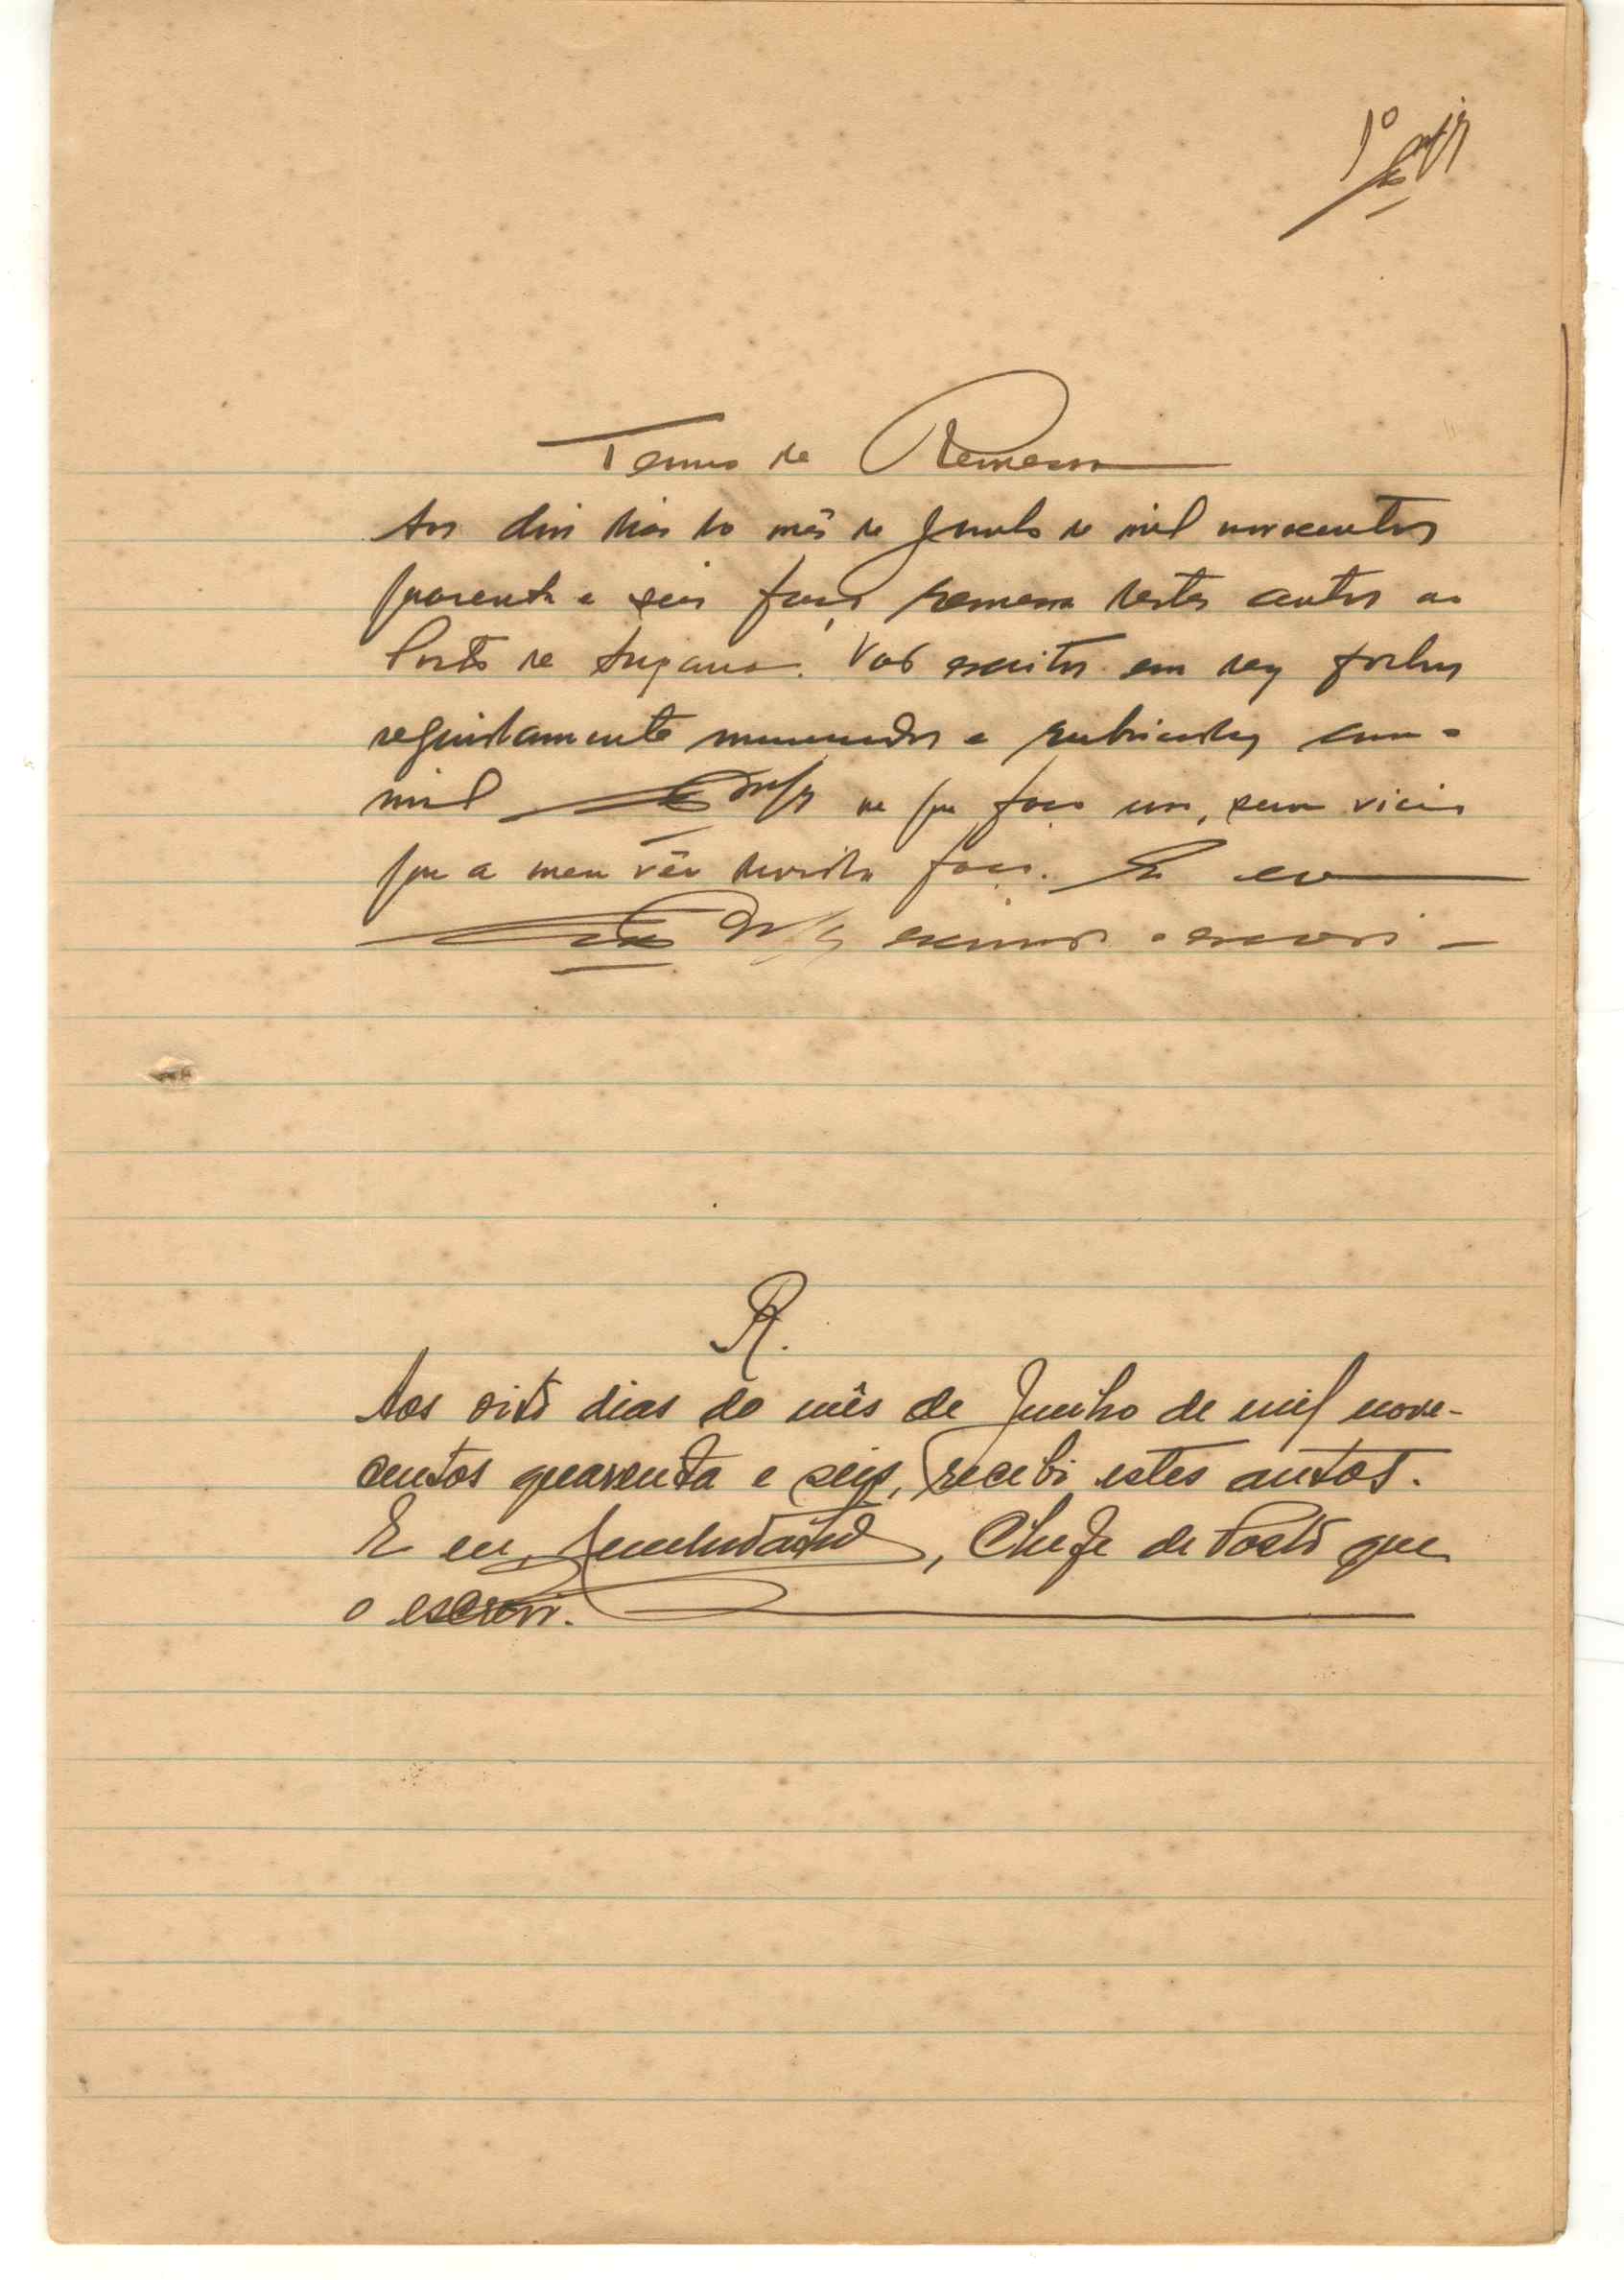 Termo de Remessa
Aos dois dias do mês de Junho de mil novecentos
quarenta e seis faço remessa destes autos ao
Posto de . Vão escritos em dez folhas
seguidamente numeradas e rubricadas com o
mil de que faço uso, sem vicio
que a meu vêr duvida faça. E eu
escrivão o escrevi
R.
Aos oito dias do mês de Junho de mil nove-
centos quarenta e seis, recebi estes autos.
E eu, , Chefe de Posto que
o escrevi.